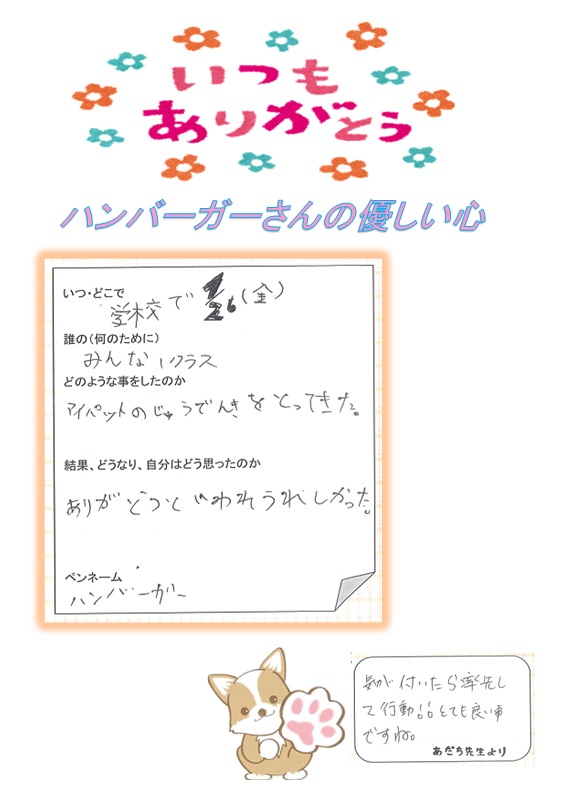 いつも
ありがとう
ハンバーガーさんの優しい心
いつ・どこで
学校で 1/26(金)
誰の(何のために)
みんな/クラス
どのような事をしたのか
アイパットのじゅうでんきをとってきた。
結果、どうなり、自分はどう思ったのか
ありがとうといわれうれしかった。
ペンネーム
ハンバーガー
気が付いたら率先し
て行動!!とても良い事
ですね。
あだち先生より